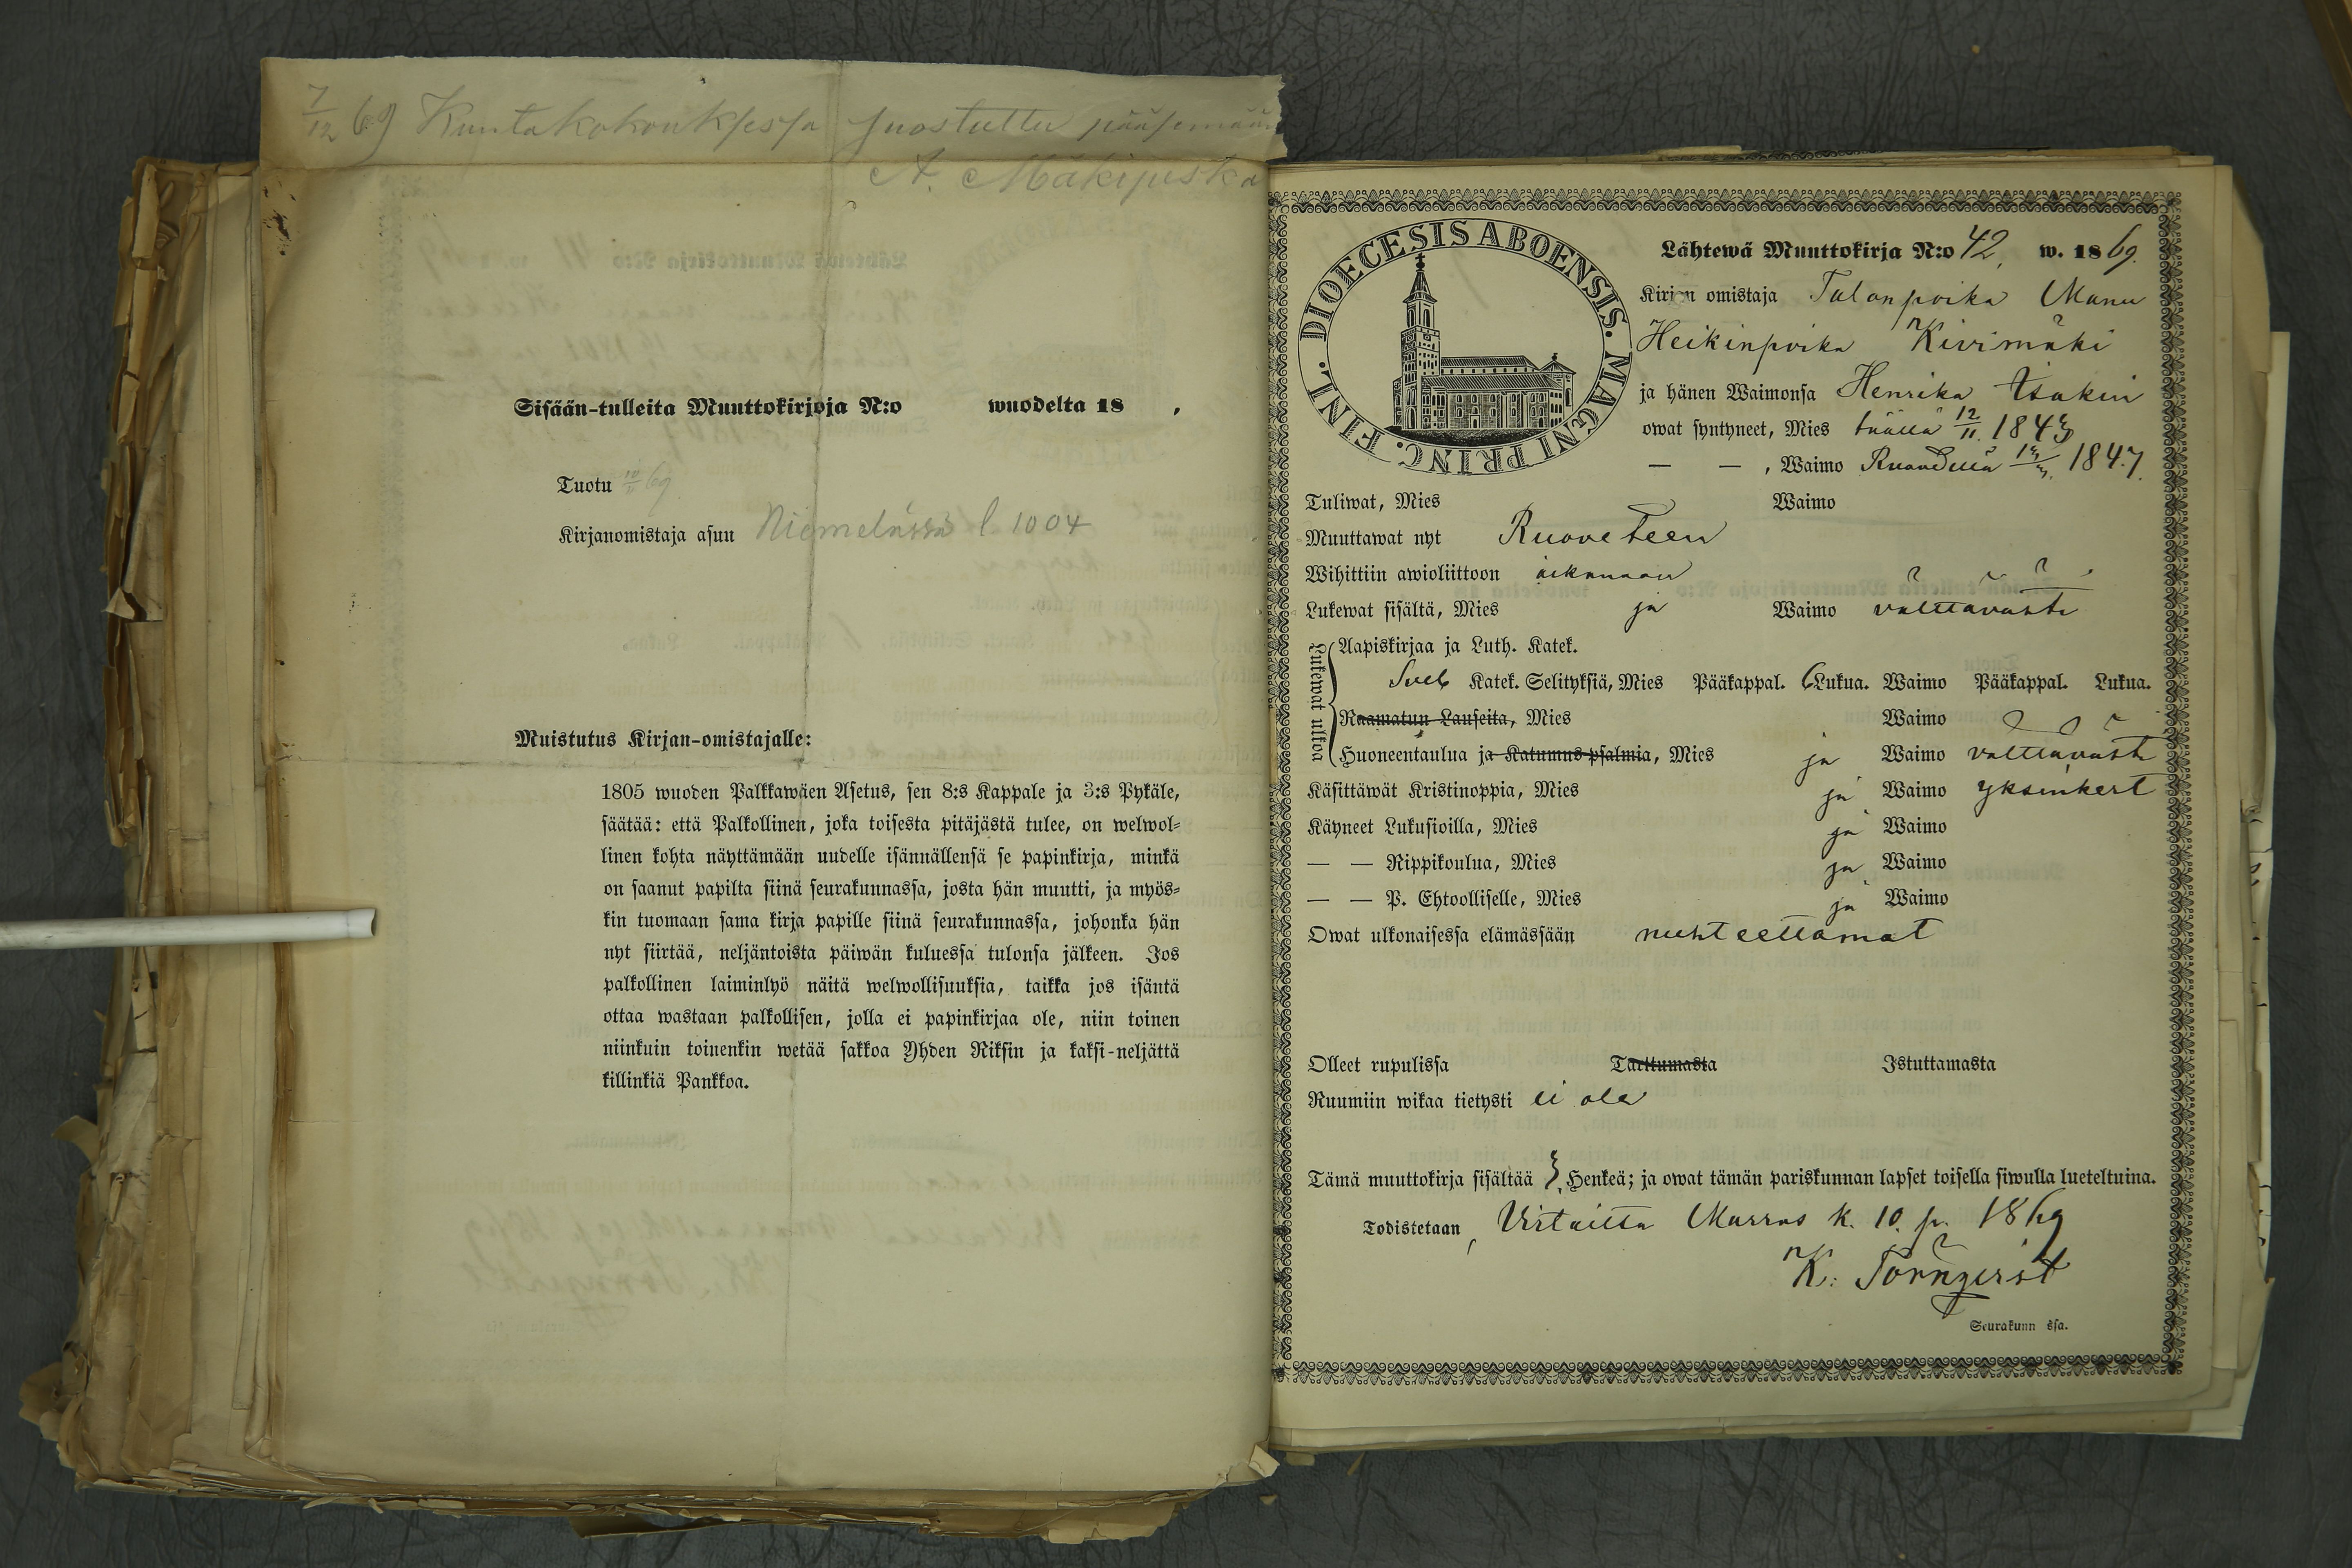 7/12 69 Kuntakokouksessa suostuttu pääsemään
A. Mäkipeska
Sisään-tulleita Muuttokirjoja N:o wuodelta 18 ,
Tuotu 69
Kirjanomistaja asuu Niemelässä l. 1004
Muistutus Kirjan-omistajalle:
1805 wuoden Palkkawäen Asetus, sen 8:s Kappale ja 3:s Pykäle,
säätää: että Palkollinen, joka toisesta pitäjästä tulee, on welwol-
linen kohta näyttämään uudelle isännällensä se papinkirja, minkä
on saanut papilta siinä seurakunnassa, josta hän muutti, ja myös-
kin tuomaan sama kirja papille siinä seurakunnassa, johonka hän
nyt siirtää, neljäntoista päiwän kuluessa tulonsa jälkeen. Jos
palkollinen laiminlyö näitä welwollisuuksia, taikka jos isäntä
ottaa wastaan palkollisen, jolla ei papinkirjaa ole, niin toinen
niinkuin toinenkin wetää sakkoa Yhden Riksin ja kaksi-neljättä
killinkiä Pankkoa.
DIOECESIS ABOENSIS. MAGNI PRINC. FINL.
Lähtewä Muuttokirja N:o 42. w. 1869.
Kirjan omistaja Talonpoika Manu
Heikinpoika Kivimäki
ja hänen Waimonsa Henrika Isakin
owat syntyneet, Mies täällä 12/11. 1843
— — , Waimo 1847.
Tuliwat, Mies Waimo
Muuttawat nyt Ruoveteen
Wihittiin awioliittoon aikanaan
Lukewat sisältä, Mies ja Waimo välttävästi
Lukewat ulkoa
Aapiskirjaa ja Luth. Katek.
Sveb Katek. Selityksiä, Mies Pääkappal. 6 Lukua. Waimo Pääkappal. Lukua.
Raamatun Lauseita, Mies Waimo
Huoneentaulua ja Katumus-psalmia, Mies ja Waimo välttäväst
Käsittäwät Kristinoppia, Mies ja Waimo yksinkert
Käyneet Lukusioilla, Mies ja Waimo
— — Rippikoulua, Mies ja Waimo
— — P. Ehtoolliselle, Mies ja Waimo
Owat ulkonaisessa elämässään nuhteettomat
Olleet rupulissa Tarttumasta Istuttamasta
Ruumiin wikaa tietysti ei ole
Tämä muuttokirja sisältää Henkeä; ja owat tämän pariskunnan lapset toisella siwulla lueteltuina.
Todistetaan, Virtailta Marras k. 10. p. 1869
K: Törnqvist
Seurakunn ssa.